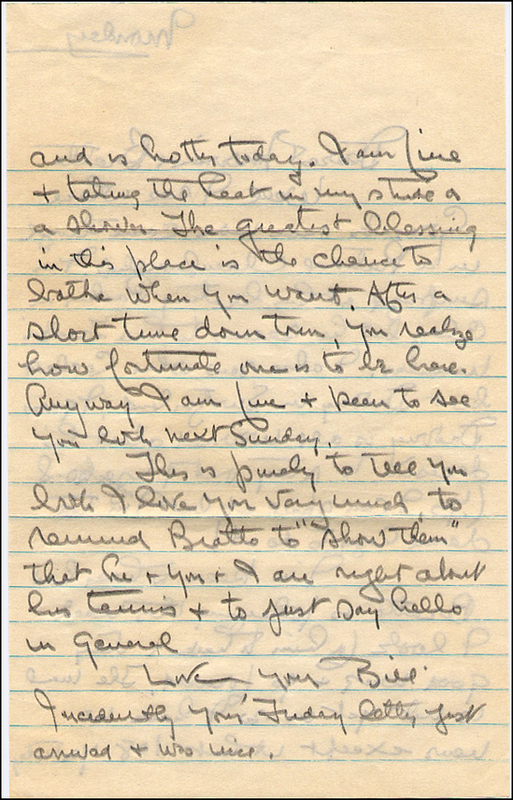 and is hotter today. I am fine
+ taking the heat in my stride or
a shiver. The greatest blessing
in this place is the chance to
bathe when you want. After a
short time down town, you realize
how fortunate one is to be here.
Anyway I am fine + keen to see
you both next Sunday.
This is purely to tell you
both I love you very much, to
remind Beatto to "show them"
that he + you + I are right about
his tennis + to just say hello
in general
Love your Bill
Incidently your Friday letter just
arrived + was nice.